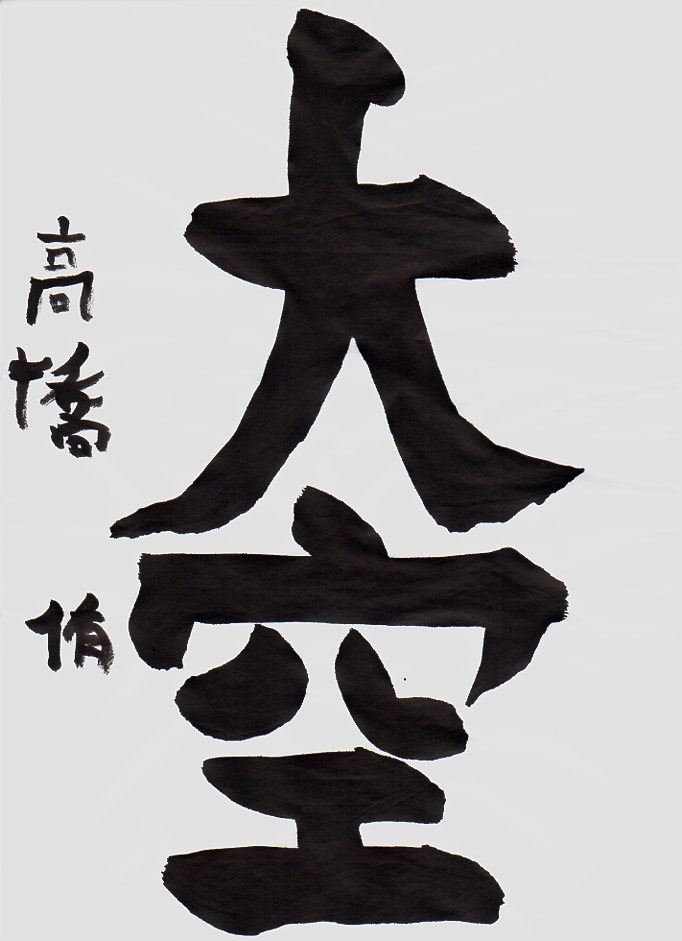 大空
高橋 侑